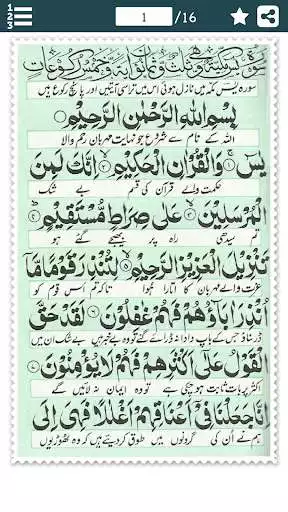 1 2 3
1 /16
سورہ یٰس مکہ میں نازل ہوئی اس میں تراسی آیتیں اور پانچ رکوع ہیں
بِسْمِ اللهِ الرَّحْمٰنِ الرَّحِيْمِ
اللہ کے نام سے شروع جو نہایت مہربان رحم والا
يٰسٓ ۚ ۱ وَالْقُرْاٰنِ الْحَكِيْمِ ۙ ۲ اِنَّكَ لَمِنَ
حکمت والے قرآن کی قسم بے شک
الْمُرْسَلِيْنَ ۙ ۳ عَلٰى صِرَاطٍ مُّسْتَقِيْمٍ ؕ ۴
تم سیدھی راہ پر بھیجے گئے ہو
تَنْزِيْلَ الْعَزِيْزِ الرَّحِيْمِ ۙ ۵ لِتُنْذِرَ قَوْمًا مَّاۤ
عزت والے مہربان کا اتارا ہوا تاکہ تم اس قوم کو
اُنْذِرَ اٰبَآؤُهُمْ فَهُمْ غٰفِلُوْنَ ۶ لَقَدْ حَقَّ
ڈر سناؤ جس کے باپ دادا نہ ڈرائے گئے تو وہ بے خبر ہیں بے شک ان میں
الْقَوْلُ عَلٰۤى اَكْثَرِهِمْ فَهُمْ لَا يُؤْمِنُوْنَ ۷
اکثر پر بات ثابت ہو چکی ہے تو وہ ایمان نہ لائیں گے
اِنَّا جَعَلْنَا فِيْۤ اَعْنَاقِهِمْ اَغْلٰلًا فَهِيَ اِلَى
ہم نے ان کی گردنوں میں طوق کر دیئے ہیں کہ وہ ٹھوڑیوں